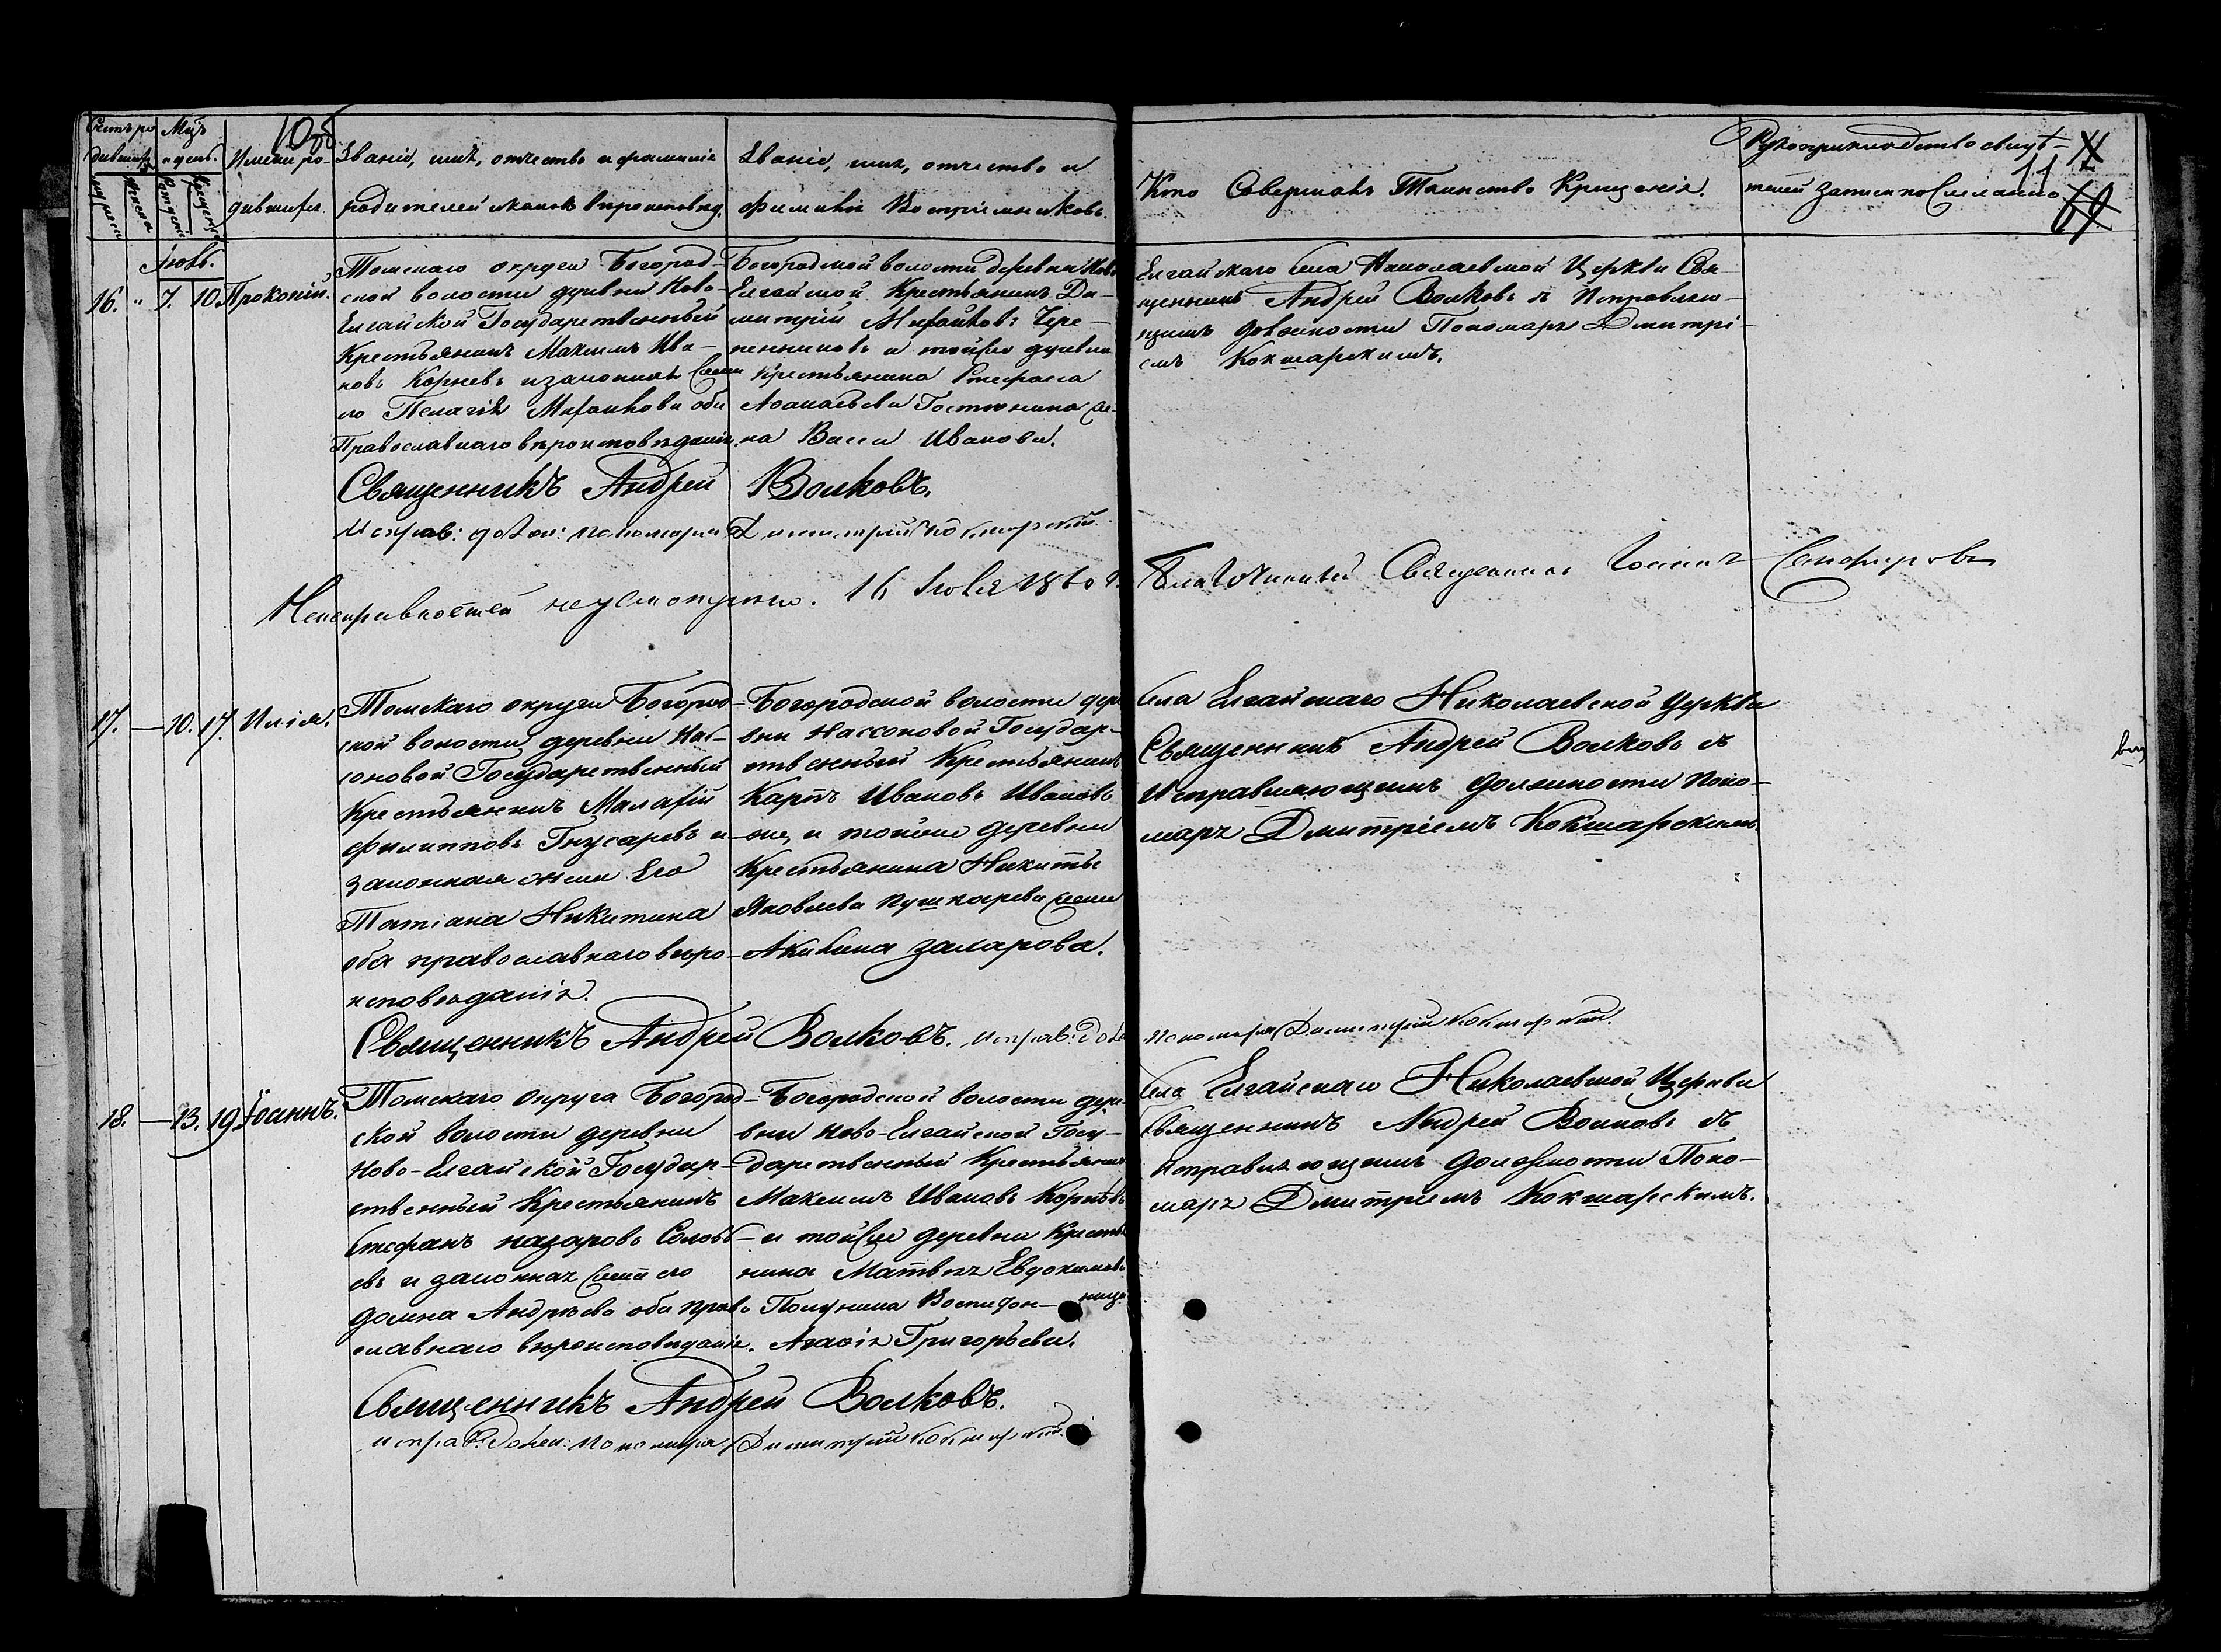 10об
Счетъ ро
дивших
муж: пола
женска
Мѣс:
и день.
Рожденiя
Крещенiя
Имена ро-
дившихся.
Званiе, имя, отчество и фамилiя
родителей и какого вѣроисповѣд.
Званiе, имя, отчество и
фамилiя Воспрiемниковъ.
Кто Совершалъ Таинство Крещенiя.
Рукоприкладство свидѣ-
телей записи по желанiю
11
69
Iюль.
16. " 7. 10. Прокопiй.
Томскаго округа Богород-
ской волости деревни Ново-
Елгайской Государственный
Крестьянинъ Максимъ Ива-
новъ Корневъ и законная жена
его Пелагiя Михайлова оба
Православнаго вѣроисповѣданiя.
Богородской волости деревни Ново-
Елгайской Крестьянинъ Ди-
митрiй Михайловъ Чере-
пенниковъ и тойже деревни
Крестьянина Стефана
Афанасьева Гостюнина же-
на Васса Иванова.
Елгайскаго села Николаевской Церкви Свя-
щенникъ Андрей Волковъ съ Исправляю-
щимъ должность Пономаря Дмитрi-
емъ Кокшарскимъ.
Священникъ Андрей Волковъ.
Исправ: долж: пономаря Димитрiй Кокшарскiй.
Неисправностей не усмотрено. 16 Iюля 1860 г. Благочинный Священникъ Iоаннъ
17. — 10. 17. Илiя.
Томскаго округа Богород-
ской волости деревни Нас-
соновой Государственный
Крестьянинъ Малафiй
Филипповъ Гнусаревъ и
законная жена Его
Татiана Никитина
оба православнаго вѣро-
исповѣданiя.
Богородской волости дер
вни Нассоновой Государ-
ственный Крестьянинъ
Карпъ Ивановъ Ивановъ
же, и тойже деревни
Крестьянина Никиты
Яковлева Пушкарева жена
Акилина Захарова.
Села Елгайскаго Николаевской Церкви
Священникъ Андрей Волковъ съ
Исправляющимъ должности Поно-
маря Дмитрiемъ Кокшарскимъ.
Священникъ Андрей Волковъ. Исправ: долж
Пономаря Димитрiй Кокшарскiй.
18. — 13. 19. Iоаннъ.
Томскаго Округа Богород-
ской волости деревни
Ново-Елгайской Государ-
ственный Крестьянинъ
Стефанъ Назаровъ Соловь
евъ и законная жена его
Домна Андреева оба право
славнаго вѣроисповѣданiя.
Богородской волости дере-
вни Ново-Елгайской Госу-
дарственный Крестьянинъ
Максимъ Ивановъ Корневъ
и тойже деревни Кресть
нина Матвѣя Евдокимова
Полунина Воспитон-ница
Агафiя Григорьева.
Села Елгайскаго Николаевской Церкви
Священникъ Андрей Волковъ съ
Исправляющимъ должности Поно-
маря Дмитрiемъ Кокшарскимъ.
Священникъ Андрей Волковъ.
исправ: долж: Пономаря Димитрiй Кокшарскiй.